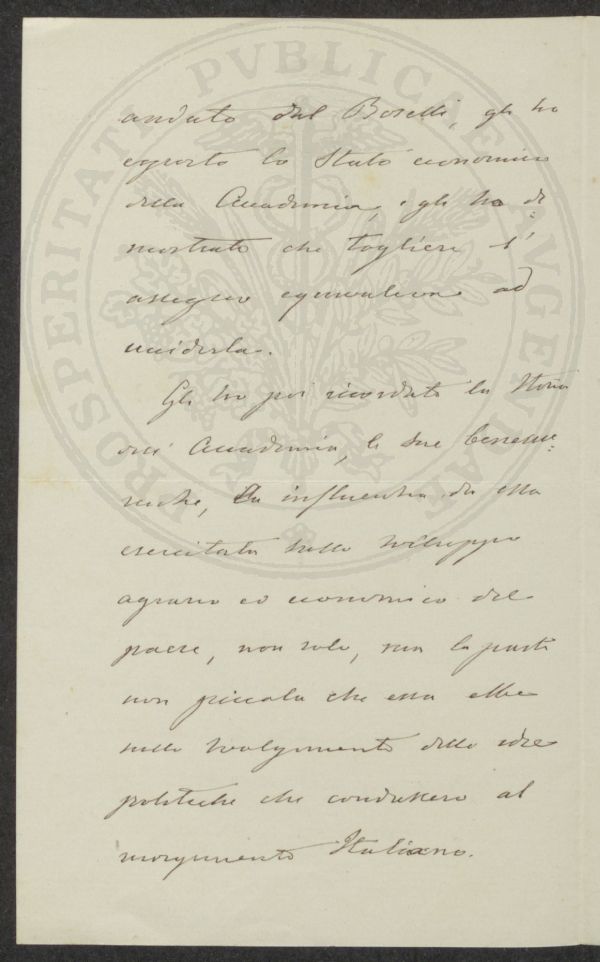 PROSPERITATI PVBLICAE AVGENDAE
andato dal Boselli, gli ho
esposto lo Stato economico
della Accademia, e gli ho di=
mostrato che togliere l'
assegno equivaleva ad
ucciderla.
Gli ho poi ricordato la Storia
dell' Accademia, le sue beneme=
renze, la influenza da essa
esercitata sullo sviluppo
agrario ed economico del
paese, non solo, ma la parte
non piccola che essa ebbe
nello svolgimento delle idee
politiche che condussero al
risorgimento Italiano.